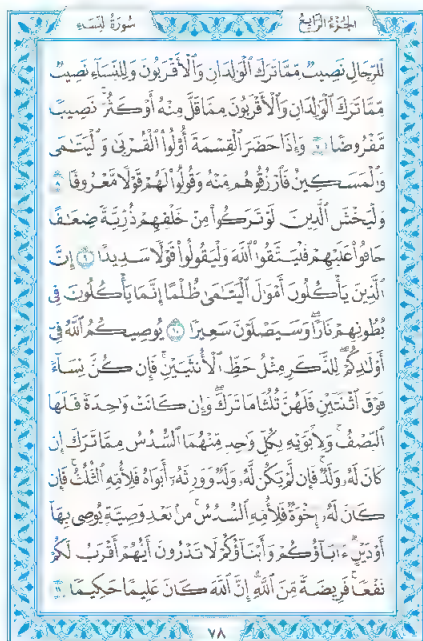 الجزء الرابع سورة النساء
لِّلرِّجَالِ نَصِيبٌ مِّمَّا تَرَكَ ٱلْوَٰلِدَانِ وَٱلْأَقْرَبُونَ وَلِلنِّسَآءِ نَصِيبٌ
مِّمَّا تَرَكَ ٱلْوَٰلِدَانِ وَٱلْأَقْرَبُونَ مِمَّا قَلَّ مِنْهُ أَوْ كَثُرَ ۚ نَصِيبًا
مَّفْرُوضًا ٧ وَإِذَا حَضَرَ ٱلْقِسْمَةَ أُو۟لُوا۟ ٱلْقُرْبَىٰ وَٱلْيَتَٰمَىٰ
وَٱلْمَسَٰكِينُ فَٱرْزُقُوهُم مِّنْهُ وَقُولُوا۟ لَهُمْ قَوْلًا مَّعْرُوفًا ٨
وَلْيَخْشَ ٱلَّذِينَ لَوْ تَرَكُوا۟ مِنْ خَلْفِهِمْ ذُرِّيَّةً ضِعَٰفًا
خَافُوا۟ عَلَيْهِمْ فَلْيَتَّقُوا۟ ٱللَّهَ وَلْيَقُولُوا۟ قَوْلًا سَدِيدًا ٩ إِنَّ
ٱلَّذِينَ يَأْكُلُونَ أَمْوَٰلَ ٱلْيَتَٰمَىٰ ظُلْمًا إِنَّمَا يَأْكُلُونَ فِى
بُطُونِهِمْ نَارًا ۖ وَسَيَصْلَوْنَ سَعِيرًا ١٠ يُوصِيكُمُ ٱللَّهُ فِىٓ
أَوْلَٰدِكُمْ ۖ لِلذَّكَرِ مِثْلُ حَظِّ ٱلْأُنثَيَيْنِ ۚ فَإِن كُنَّ نِسَآءً
فَوْقَ ٱثْنَتَيْنِ فَلَهُنَّ ثُلُثَا مَا تَرَكَ ۖ وَإِن كَانَتْ وَٰحِدَةً فَلَهَا
ٱلنِّصْفُ ۚ وَلِأَبَوَيْهِ لِكُلِّ وَٰحِدٍ مِّنْهُمَا ٱلسُّدُسُ مِمَّا تَرَكَ إِن
كَانَ لَهُۥ وَلَدٌ ۚ فَإِن لَّمْ يَكُن لَّهُۥ وَلَدٌ وَوَرِثَهُۥٓ أَبَوَاهُ فَلِأُمِّهِ ٱلثُّلُثُ ۚ فَإِن
كَانَ لَهُۥٓ إِخْوَةٌ فَلِأُمِّهِ ٱلسُّدُسُ ۚ مِنۢ بَعْدِ وَصِيَّةٍ يُوصِى بِهَآ
أَوْ دَيْنٍ ۗ ءَابَآؤُكُمْ وَأَبْنَآؤُكُمْ لَا تَدْرُونَ أَيُّهُمْ أَقْرَبُ لَكُمْ
نَفْعًا ۚ فَرِيضَةً مِّنَ ٱللَّهِ ۗ إِنَّ ٱللَّهَ كَانَ عَلِيمًا حَكِيمًا ١١
٧٨